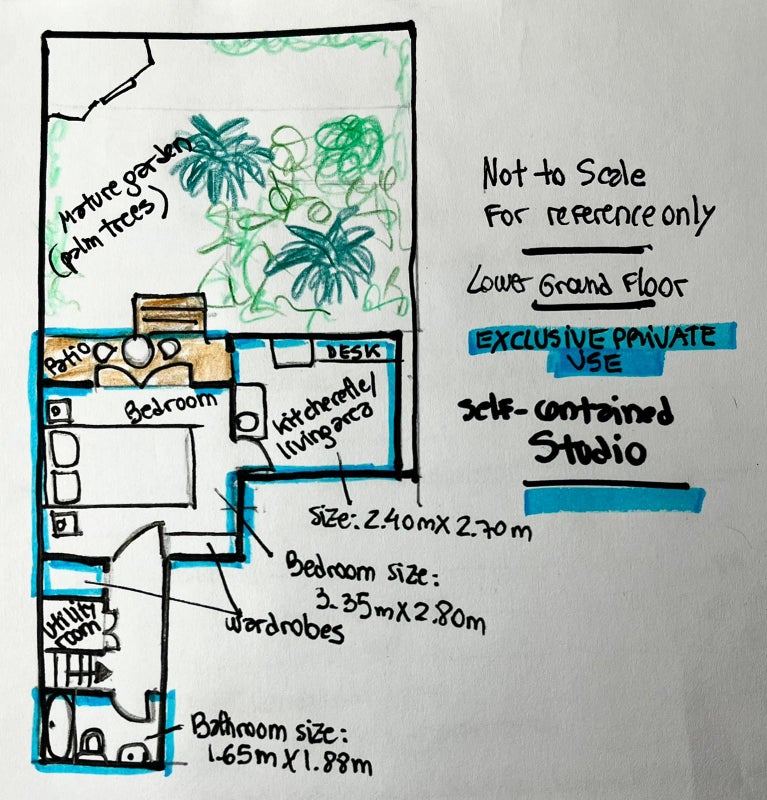 Mature garden
(palm trees)
Not to Scale
For reference only
Lower Ground Floor
EXCLUSIVE PRIVATE
USE
Self-contained
Studio
Patio
DESK
Bedroom
Kitchenette/
living area
Size: 2.40m X 2.70m
Bedroom size:
3.35m X 2.80m
wardrobes
Utility
room
Bathroom size:
1.65m X 1.88m